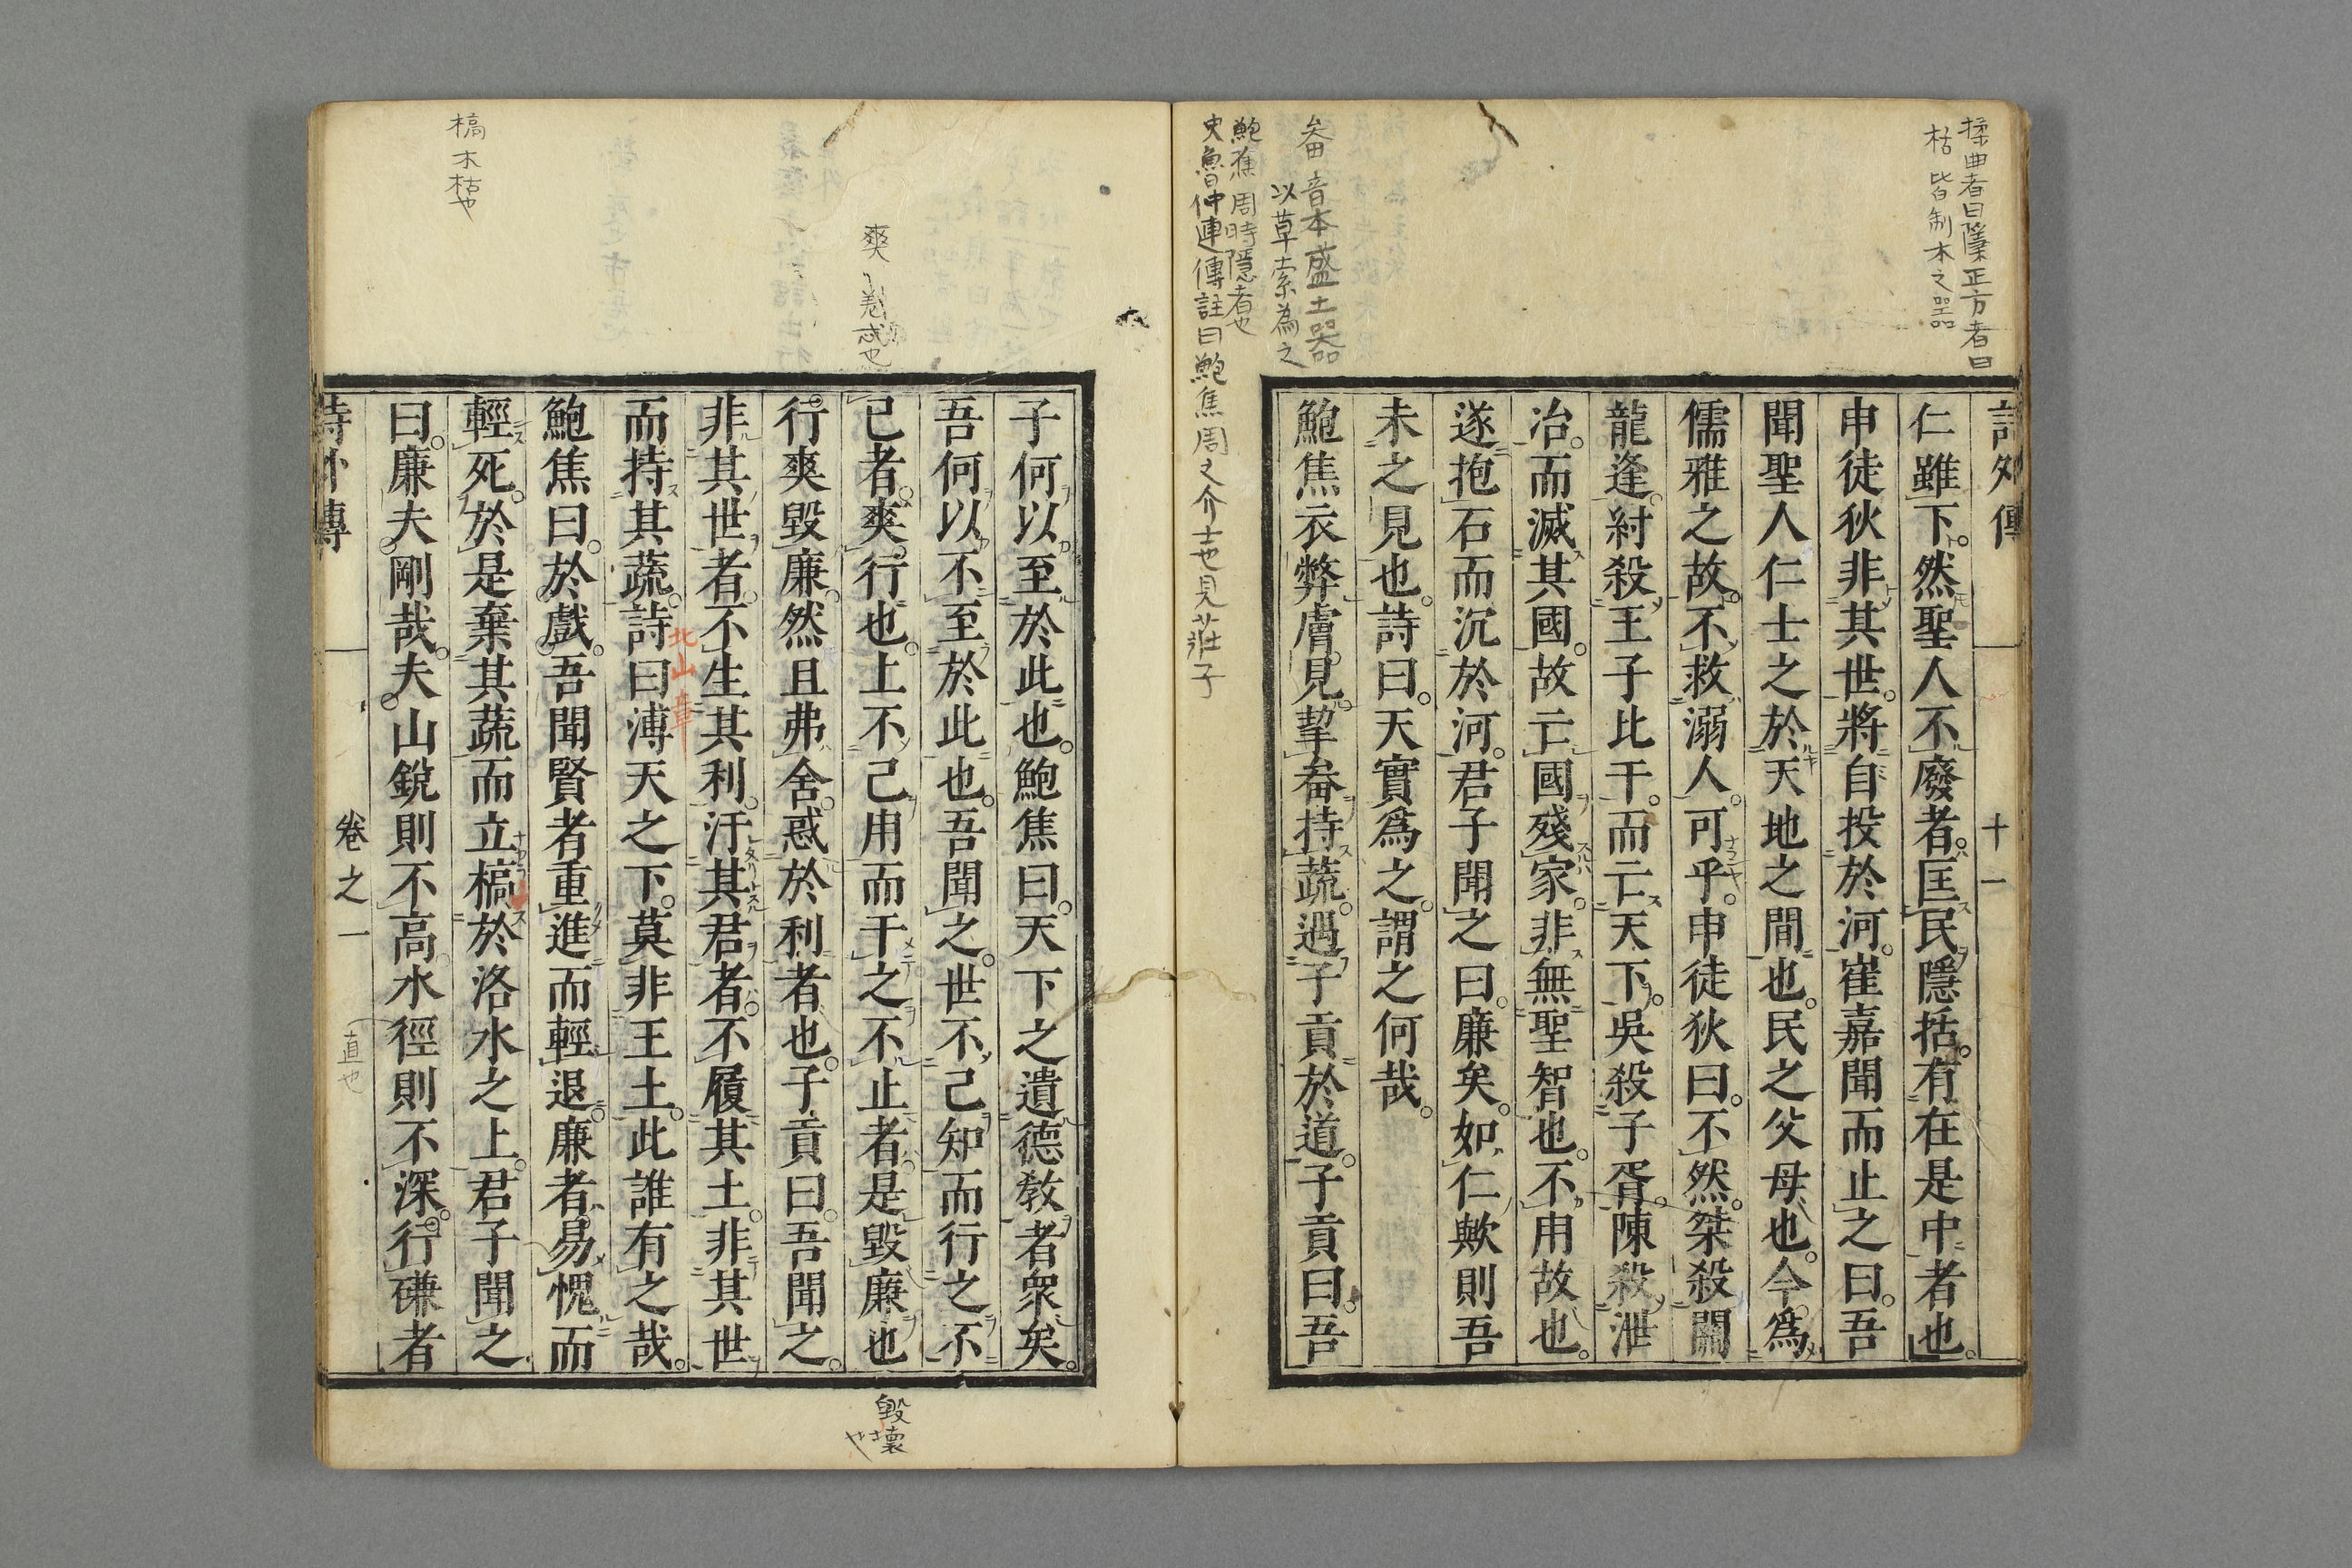 揉曲者曰隱正方者曰
枯皆制木之器
畚音本盛土器
以草索為之
鮑焦周時隱者也
史魯仲連傳註曰鮑焦周之介士也見莊子
詩外傳
十一
仁雖下然聖人不廢者匡民隱括有在是中者也
申徒狄非其世將自投於河崔嘉聞而止之曰吾
聞聖人仁士之於天地之間也民之父母也今爲
儒雅之故不救溺人可乎申徒狄曰不然桀殺關
龍逢紂殺王子比干而亡天下吳殺子胥陳殺泄
冶而滅其國故亡國殘家非無聖智也不用故也
遂抱石而沉於河君子聞之曰廉矣如仁歟則吾
未之見也詩曰天實爲之謂之何哉
鮑焦衣弊膚見挈畚持蔬遇子貢於道子貢曰吾
爽
惑也
槁木枯也
子何以至於此也鮑焦曰天下之遺德教者衆矣
吾何以不至於此也吾聞之世不己知而行之不
已者爽行也上不己用而干之不止者是毀廉也
行爽毀廉然且弗舍惑於利者也子貢曰吾聞之
非其世者不生其利汙其君者不履其土非其世
而持其蔬詩曰溥天之下莫非王土此誰有之哉
北山章
鮑焦曰於戲吾聞賢者重進而輕退廉者易愧而
輕死於是棄其蔬而立槁於洛水之上君子聞之
曰廉夫剛哉夫山銳則不高水徑則不深行磏者
直也
毀壞
詩外傳
卷之一